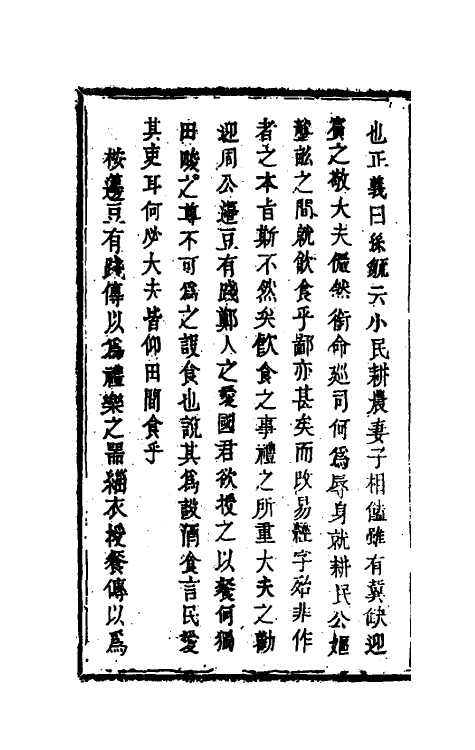 也正義曰孫毓云小民耕農妻子相饁雖有冀缺迎
賓之敬大夫儼然銜命巡司何為辱身就耕民公嫗
壟畝之間就飲食乎鄙亦甚矣而改易經字殆非作
者之本旨斯不然矣飲食之事禮之所重大夫之勸
迎周公籩豆有踐鄭人之愛國君欲授之以餐何獨
田畯之尊不可為之設食也說其為設酒食言民愛
其吏耳何必大夫皆仰田間食乎
按籩豆有踐傳以為禮樂之器緇衣授餐傳以為